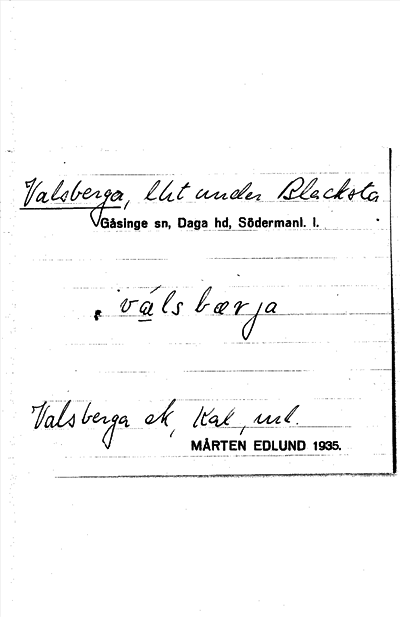 Valsberga, lht under Blacksta
Gåsinge sn, Daga hd, Södermanl. l.
válsbærja
Valsberga ek, Kal, ml.
MÅRTEN EDLUND 1935.